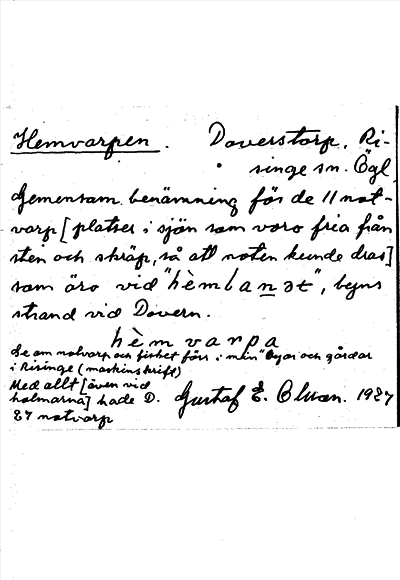 Hemvarpen. Doverstorp, Ri-
singe sn. Ögl
Gemensam benämning för de 11 not-
varp [platser i sjön som voro fria från
sten och skräp, så att noten kunde dras]
som äro vid "hèmlanət", byns
strand vid Dovern.
hèmvarpa
Se om notvarp och fisket förr i min "Byar och gårdar
i Risinge (maskinskrift)
Med allt [även vid
holmarna] hade D. Gustaf E. Olsson. 1927
27 notvarp